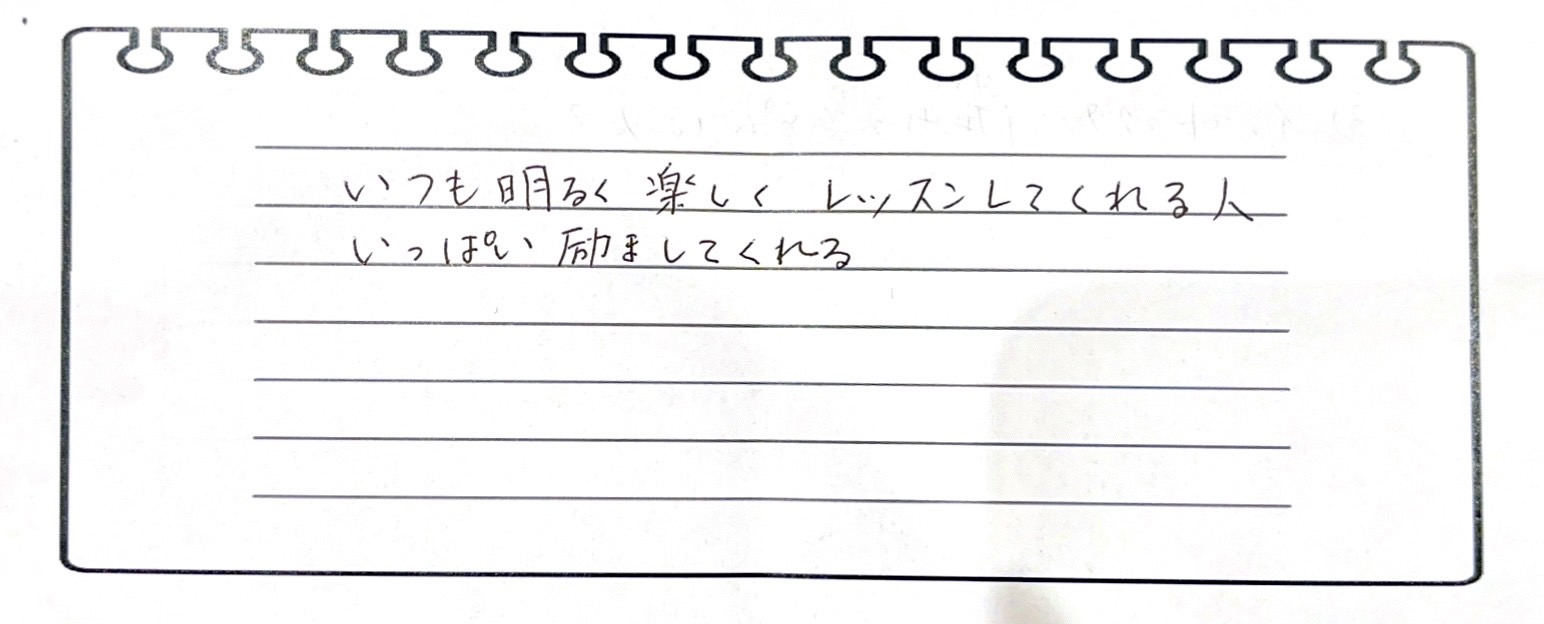 いつも明るく 楽しく レッスンしてくれる人
いっぱい 励ましてくれる